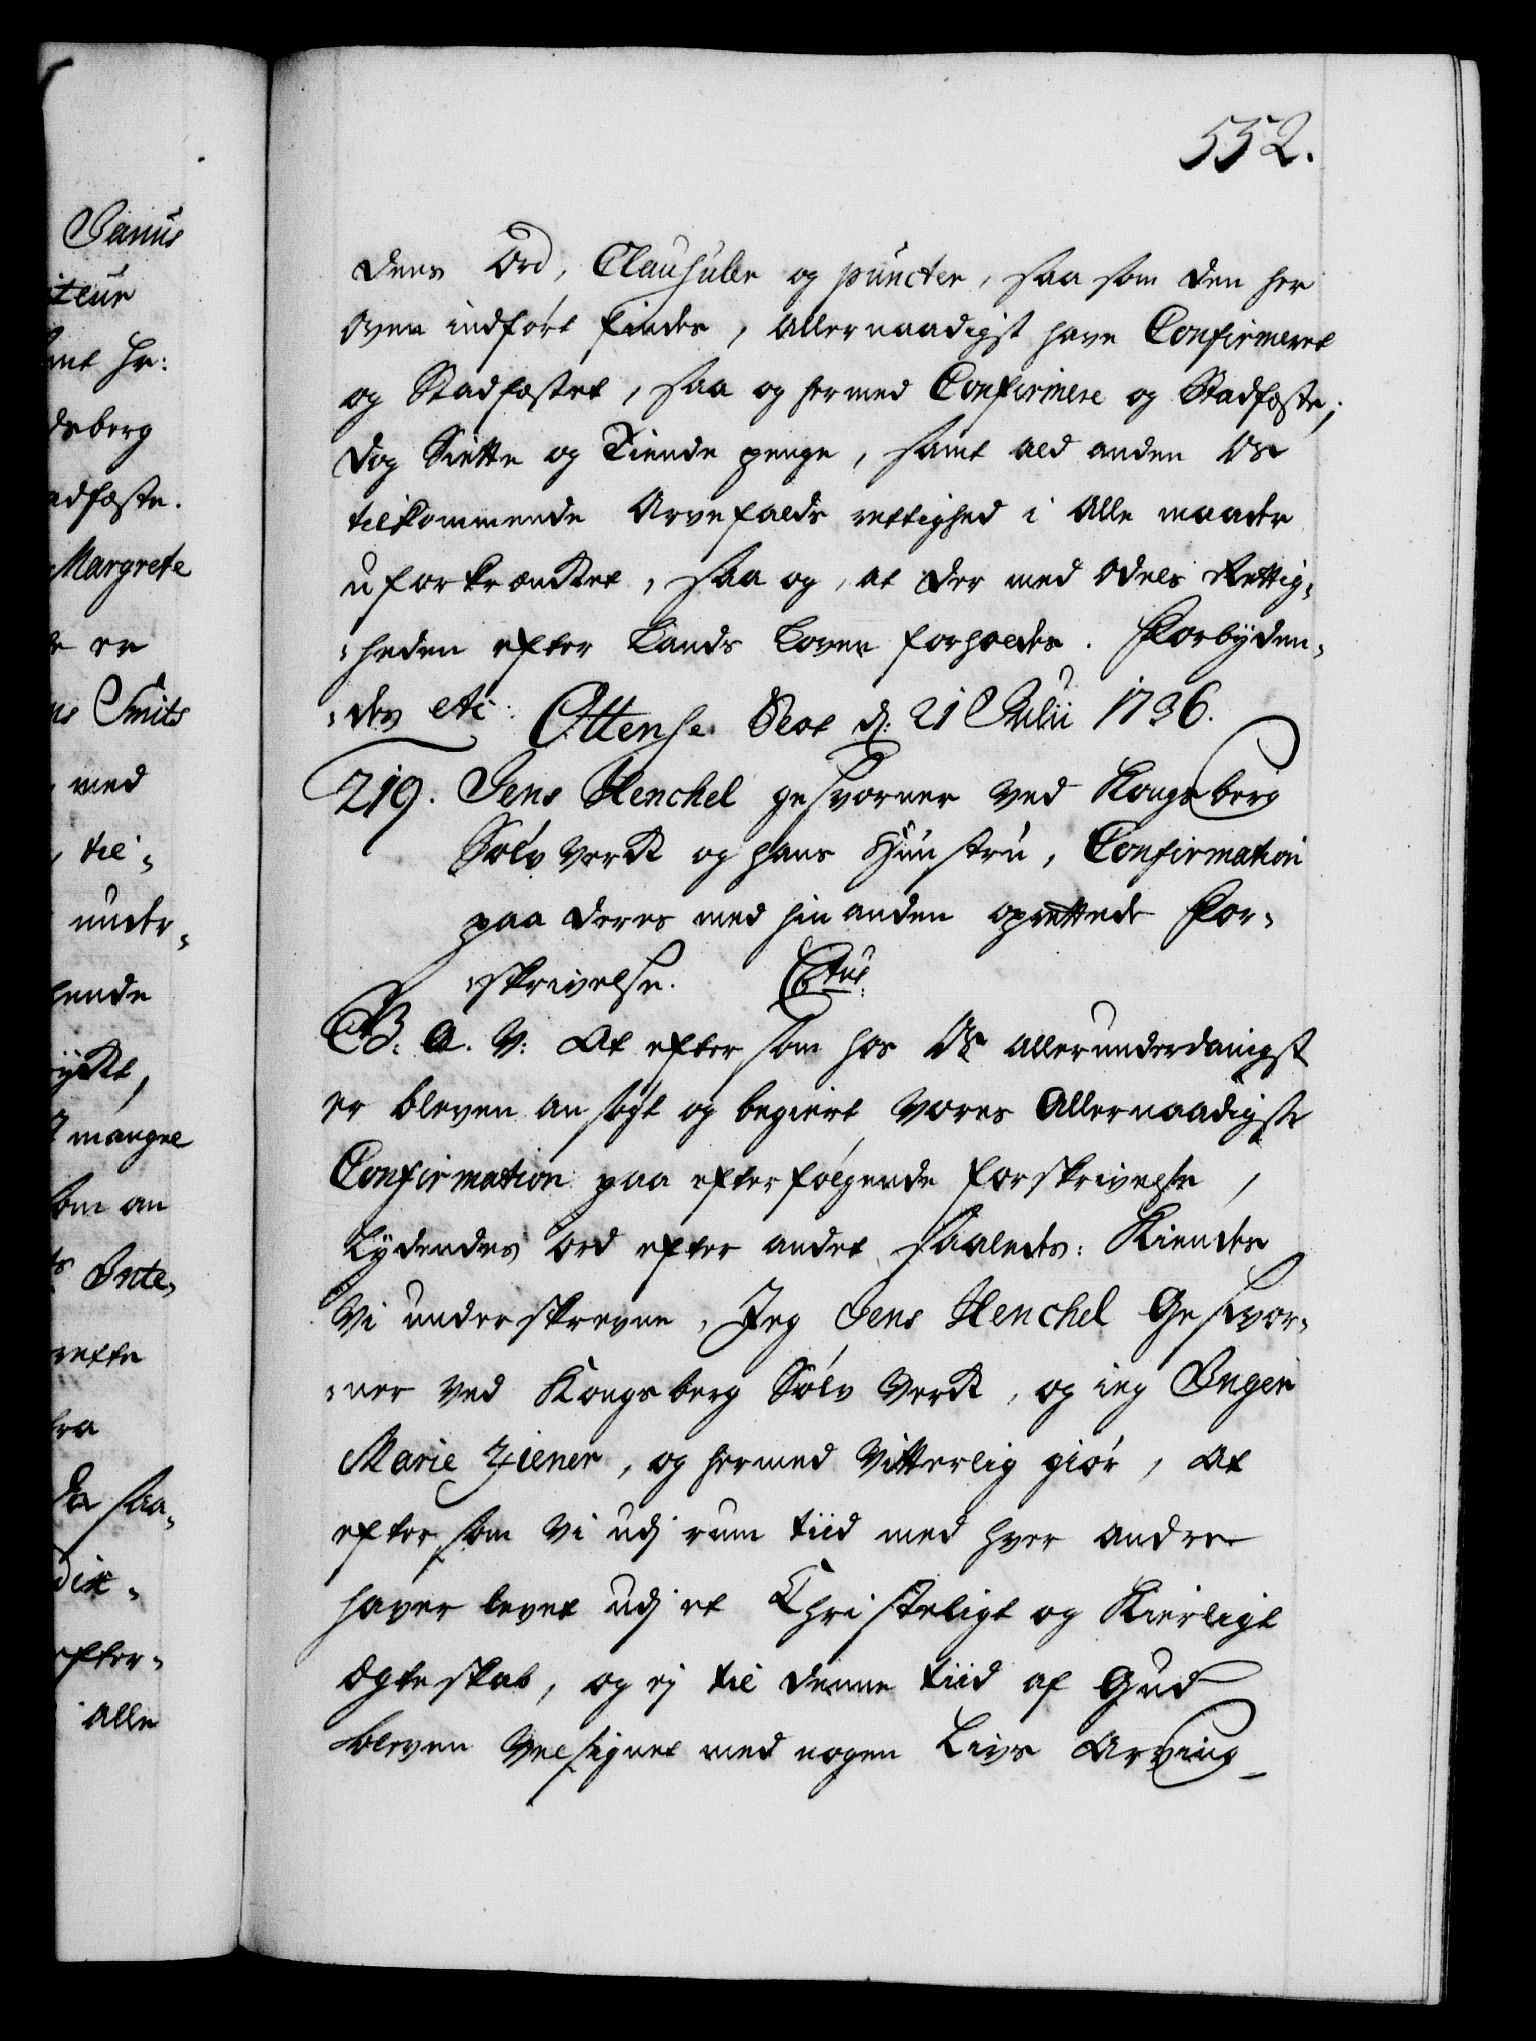 552.
dens Ord, Clausuler og puncter, saa som den her
oven indført findes, allernaadigst have Confirmeret
og Stadfæstet, saa og hermed Confirmere og Stadfæste;
Dog Siette og Tiende penge, samt ald anden Os
tilkommende Arvefalds rettighed i alle maader
uforkrænket, saa og, at der med Odels Rettig-
heden efter Lands Loven forholdes. Forbyden-
des etc: Ottense Slot d: 21 Julii 1736.
219. Jens Henchel gesvorner ved Kongsberg
Sølv Verk og hans Hustru, Confirmation
paa deres med hinanden oprettede For-
skrivelse.
G. A. V: At efter som hos Os allerunderdanigst
er bleven ansøgt og begiert Vores Allernaadigste
Confirmation paa efterfølgende forskrivelse,
Lydendes Ord efter andet saaledes: Kiendes
Vi underskrevne, Jeg Jens Henchel Gesvor-
ner ved Kongsberg Sølv Verk, og ieg Inger
Marie Ziener, og hermed Vitterlig giør, At
efter som Vi udj rum tiid med hver andre
haver levet udj et Christeligt og Kierligt
Ægteskab, og ej til denne tiid af Gud
bleven Velsignet med nogen Livs Arving
Janus
iteur
mt Hr:
dsberg
adfæste.
Margrete
er
Smits
med
til-
under-
hende
mangel
som an
Inte-
rette
fra
da saa-
efter-
alle